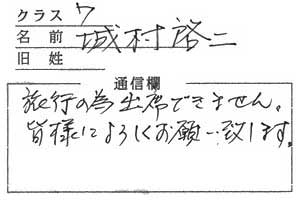 クラス 7
名前 城村啓二
旧姓
通信欄
旅行の為出席できません。
皆様によろしくお願い致します。